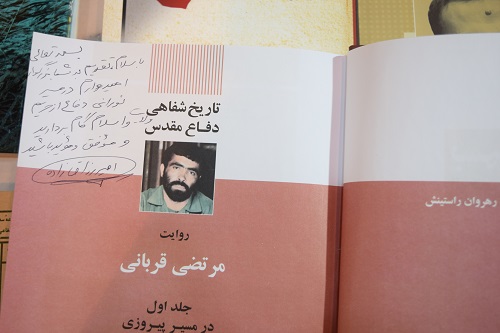 بسمه تعالی
با سلام تقدیم به شما بزرگوار
امیدوارم در مسیر
نورانی دفاع از حریم
ولایت و اسلام گام بردارید
و موفق و مؤید باشید
تاریخ شفاهی
دفاع مقدس
روایت
مرتضی قربانی
جلد اول
در مسیر پیروزی
رهروان راستینش